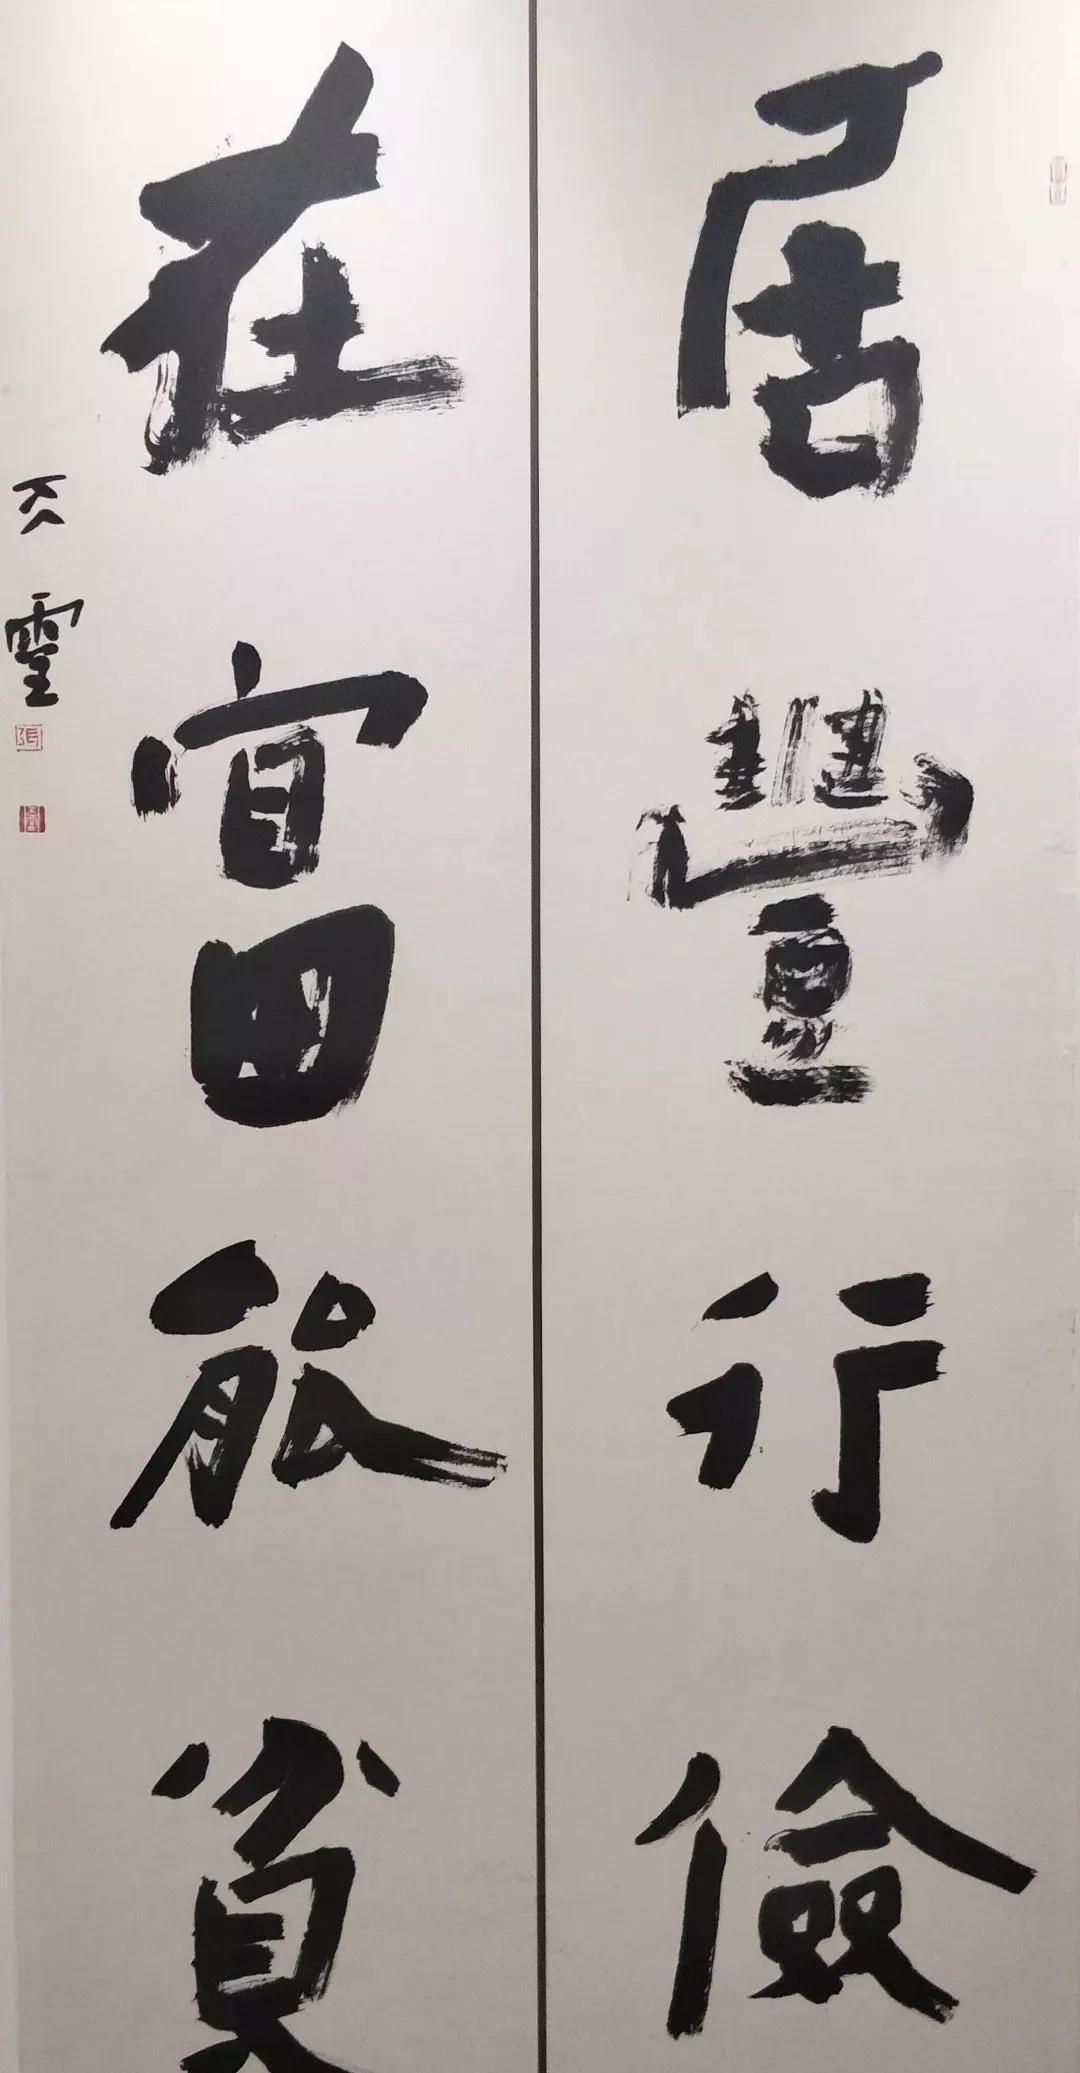 居豐行儉
在富能貧